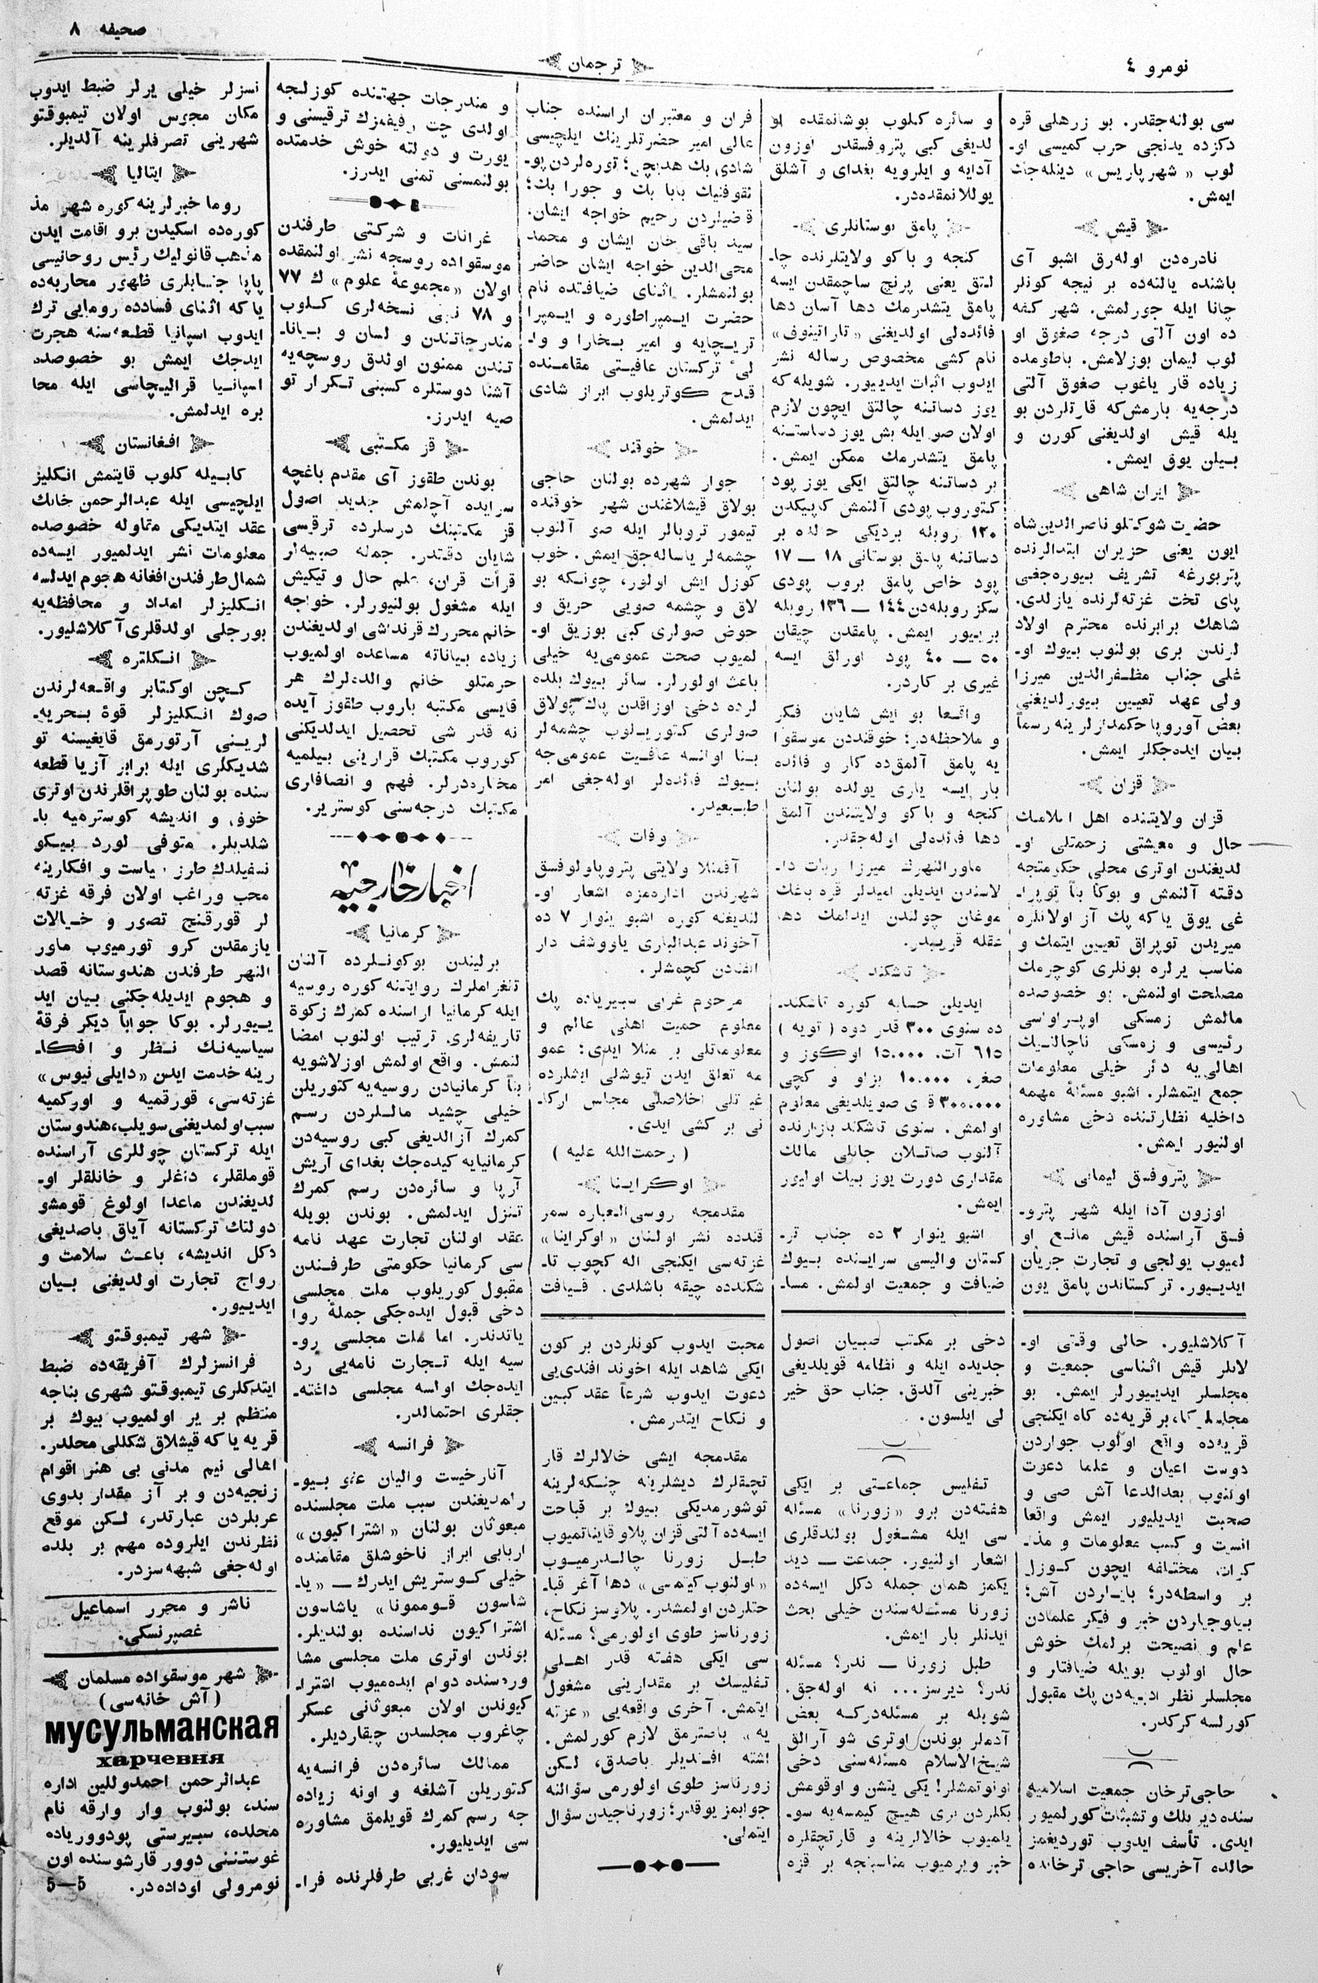 نومرو ٤
ترجمان
صحیفه ٨
سی بولنه‌جقدر. بو زرهلی قره
دکزده یدنجی حرب کمیسی او-
لوب «شهر پاریس» دینله‌جك
ایمش.
قیش
نادره‌دن اوله‌رق اشبو آی
باشنده یالته‌ده بر نیجه کونلر
چانا ایله جورلمش. شهر کفه
ده اون آلتی درجه صغوق او
لوب لیمان بوزلامش. باطومده
زیاده قار یاغوب صغوق آلتی
درجه‌یه بارمش‌که قارتلردن بو
یله قیش اولدیغنی کورن و
بیلن یوق ایمش.
ایران شاهی
حضرت شوکتلو ناصر الدین شاه
ایون یعنی حزیران ابتدالرنده
پتربورغه تشریف بیوره‌جغی
پای تخت غزته‌لرنده یازلدی.
شاهك برابرنده محترم اولاد
لرندن بری بولنوب بیوك او-
غلی جناب مظفر الدین میرزا
ولی عهد تعیین بیورلدیغنی
بعض آوروپا حکمدارلرینه رسماً
بیان ایده‌جکلر ایمش.
قزان
قزان ولایتنده اهل اسلامك
حال و معیشتی زحمتلی او-
لدیغندن اوتری محلی حکومتجه
دقته آلنمش و بوکا بناً توپرا-
غی یوق یاکه پك آز اولانلره
میریدن توپراق تعیین ایتمك و
مناسب یرلره بونلری کوچرمك
مصلحت اولنمش. بو خصوصده
مالمش زمسکی اوپراوسی
رئیسی و زمسکی ناچالنیك
اهالی‌یه دائر خیلی معلومات
جمع ایتمشلر. اشبو مسئلهٔ مهمه
داخلیه نظارتنده دخی مشاوره
اولنیور ایمش.
پتروفسق لیمانی
اوزون آدا ایله شهر پترو-
فسق آراسنده قیش مانع او
لمیوب یولجی و تجارت جریان
ایدییور. ترکستاندن پامق یون
و سائره کلوب بوشانمقده او
لدیغی کبی پتروفسقدن اوزون
آدایه و ایلرویه بغدای و آشلق
یوللانمقده‌در.
پامق بوستانلری
کنجه و باکو ولایتلرنده چا-
لتق یعنی پرنچ ساچمقدن ایسه
پامق یتشدرمك دها آسان دها
فائده‌لی اولدیغنی «تاراتینوف»
نام کشی مخصوص رساله نشر
ایدوب اثبات ایدییور. شویله‌که
یوز دساتنه چالتق ایچون لازم
اولان صو ایله بش یوز دساتنه
پامق یتشدرمك ممکن ایمش.
بر دساتنه چالتق ایکی یوز پود
کتوروب پودی آلتمش کاپیکدن
١٢٠ روبله بردیکی حالده بر
دساتنه پامق بوستانی ١٨ — ١٧
پود خاص پامق بروب پودی
سکز روبله‌دن ١٤٤ — ١٣٦ روبله
بریور ایمش. پامقدن چیقان
٥٠ — ٤٠ پود اوراق ایسه
غیری بر کاردر.
واقعا بو ایش شایان فکر
و ملاحظه‌در؛ خوقنددن موسقوا
یه پامق آلمق‌ده کار و فائده
بار ایسه یاری یولده بولنان
کنجه و باکو ولایتندن آلمق
دها فائده‌لی اوله‌جقدر.
ماورالنهرك میرزا
لاسندن ایدیلن امیدلر قره باغك
موغان چولندن ایدلمك دها
عقله قریبدر.
تاشکند
ایدیلن حسابه کوره تاشکند-
ده سنوی ٣٠٠ قدر دوه ( تویه )
٦١٥ آت، ١٥.٠٠٠ اوکوز و
صغر، ١٠.٠٠٠ بزاو و کچی
٣٠٠.٠٠٠ قوی صویلدیغی معلوم
اولمش. سنوی تاشکند بازارنده
آلنوب صاتلان جانلی مالك
مقداری دورت یوز بیك اولیور
ایمش.
اشبو ینوار ٢ ده جناب تر-
کستان والیسی سراینده بیوك
ضیافت و جمعیت اولمش. مسا-
فران و معتبران اراسنده جناب
عالی امیر حضرتلرینك ایلچیسی
شادی بك هدیچی؛ توره‌لردن پو-
لقوفنیك بابا بك و جورا بك؛
قضیلردن رحیم خواجه ایشان.
سید باقی خان ایشان و محمد
محی الدین خواجه ایشان حاضر
بولنمشلر. اثنای ضیافتده نام
حضرت ایمپراطوره و ایمپرا
تریچایه و امیر بخارا و وا-
لیٔ ترکستان عافیتی مقامنده
قدح کوتریلوب ابراز شادی
ایدلمش.
خوقند
جوار شهرده بولنان حاجی
بولاق قیشلاغندن شهر خوقنده
تیمور تروبالر ایله صو آلنوب
چشمه‌لر یاساله‌جق ایمش. خوب
کوزل ایش اولور، چونکه بو
لاق و چشمه صویی حریق و
حوض صولری کبی بوزیق او-
لمیوب صحت عمومی‌یه خیلی
باعث اولورلر. سائر بیوك بلده
لرده دخی اوزاقدن پاك بولاق
صولری کتوریلوب چشمه‌لر
بنا اولنسه عافیت عمومی‌جه
بیوك فائده‌لر اوله‌جغی امر
طبیعیدر.
وفات
آقمللا ولایتی پتروپاولوفسق
شهرندن اداره‌مزه اشعار او-
لندیغنه کوره اشبو ینوار ٧ ده
آخوند عبدالباری یاووشف دار
الفنادن کچمشلر.
مرحوم غربی سیبریاده پك
معلوم حمیت اهلی عالم و
معلوماتلی بر منلا ایدی؛ عمو
مه تعلق ایدن تیوشلی ایشلرده
غیرتلی اخلاصلی مجلس ارکا-
نی بر کشی ایدی.
( رحمت‌الله علیه )
اوکراینا
مقدمجه روسی‌العباره سمر
قندده نشر اولنان «اوکراینا»
غزته‌سی ایکنجی اله کچوب تا-
شکندده چیقه باشلدی. قیافت
و مندرجات جهتنده کوزلجه
اولدی جت رفیقمزك ترقیسنی و
یورت و دولته خوش خدمتده
بولنمسنی تمنی ایدرز.
غرانات و شرکتی طرفندن
موسقواده روسچه نشر اولنمقده
اولان «مجموعهٔ علوم» ك ٧٧
و ٧٨ نجی نسخه‌لری کلوب
مندرجاتندن و لسان و بیانا-
تندن ممنون اولدق روسچه‌یه
آشنا دوستلره کسبنی تکرار تو
صیه ایدرز.
قز مکتبی
بوندن طقوز آی مقدم باغچه
سرایده آچلمش جدید اصول
قز مکتبنك درسلرده ترقیسی
شایان دقتدر. جمله صبیه‌لر
قرأت قران، علم حال و تیکیش
ایله مشغول بولنیورلر. خواجه
خانم محررك قرنداشی اولدیغندن
زیاده بیاناته مساعده اولمیوب
حرمتلو خانم والده‌لرك هر
قایسی مکتبه باروب طقوز آیده
نه قدر شی تحصیل ایدلدیکنی
کوروب مکتبك قرارینی بیلمیه
مختاردرلر. فهم و انصافلری
مکتبك درجه‌سنی کوستریر.
اخبار خارجیه
کرمانیا
برلیندن بوکونلرده آلنان
تلغراملرك روایتنه کوره روسیه
ایله کرمانیا اراسنده کمرك زکوة
تاریفه‌لری ترتیب اولنوب امضا
لنمش. واقع اولمش اوزلاشویه
بناً کرمانیادن روسیه‌یه کتوریلن
خیلی چشید ماللردن رسم
کمرك آزالدیغی کبی روسیه‌دن
کرمانیایه کیده‌جك بغدای آریش
آرپا و سائره‌دن رسم کمرك
تنزل ایدلمش. بوندن بویله
عقد اولنان تجارت عهد نامه
سی کرمانیا حکومتی طرفندن
مقبول کوریلوب ملت مجلسی
دخی قبول ایده‌جکی جملهٔ روا
یاتندندر. اما ملت مجلسی رو-
سیه ایله تجارت نامه‌یی رد
ایده‌جك اولسه مجلسی داغته-
جقلری احتمالدر.
فرانسه
آنارخیست والیان عفو بیو-
رلمدیغندن سبب ملت مجلسنده
مبعوثان بولنان «اشتراکیون»
اربابی ابراز ناخوشلق مقامنده
خیلی کوستریش ایدرك — «یا-
شاسون قوممونا» یاشاسون
اشتراکیون نداسنده بولندیلر.
بوندن اوتری ملت مجلسی مشا
وره‌سنده دوام ایده‌میوب اشترا-
کیوندن اولان مبعوثانی عسکر
چاغروب مجلسدن چیقاردیلر.
ممالك سائره‌دن فرانسه‌یه
کتوریلن آشلغه و اونه زیاده
جه رسم کمرك قویلمق مشاوره
سی ایدیلیور.
سودان غربی طرفلرنده فرا-
نسزلر خیلی یرلر ضبط ایدوب
مکان مجوس اولان تیمبوقتو
شهرینی تصرفلرینه آلدیلر.
ایتالیا
روما خبرلرینه کوره شهر مذ
کوره‌ده اسکیدن برو اقامت ایدن
مذهب قاتولیك رئیس روحانیسی
پاپا جنابلری ظهور محاربه‌ده
یاکه اثنای فسادده رومایی ترك
ایدوب اسپانیا قطعه‌سنه هجرت
ایدجك ایمش بو خصوصده
اسپانیا قرالیچاسی ایله مخا
بره ایدلمش.
افغانستان
کابیله کلوب قایتمش انکلیز
ایلچیسی ایله عبدالرحمن خانك
عقد ایتدیکی مقاوله خصوصده
معلومات نشر ایدلمیور ایسه‌ده
شمال طرفندن افغانه هجوم ایدلسه
انکلیزلر امداد و محافظه‌یه
بورجلی اولدقلری آکلاشلیور.
انکلتره
کچن اوکتابر واقعه‌لرندن
صوك انکلیزلر قوهٔ بحریه-
لرینی آرتورمق قایغیسنه تو
شدیکلری ایله برابر آزیا قطعه
سنده بولنان طوپراقلرندن اوتری
خوف و اندیشه کوسترمیه با-
شلدیلر. متوفی لورد بیکو
نسفیلدك طرز سیاست و افکارینه
محب وراغب اولان فرقه غزته
لر قورقنج تصور و خیالات
یازمقدن کرو تورمیوب ماور
النهر طرفندن هندوستانه قصد
و هجوم ایدیله‌جکنی بیان اید
ییورلر. بوکا جواباً دیکر فرقهٔ
سیاسیه‌نك نظر و افکا-
رینه خدمت ایدن «دایلی نیوس»
غزته‌سی، قورقمیه و اورکمیه
سبب اولمدیغنی سویلب، هندوستان
ایله ترکستان چوللری آراسنده
قوملقلر، داغلر و خانلقلر او-
لدیغندن ماعدا اولوغ قومشو
دولتك ترکستانه آیاق باصدیغی
دکل اندیشه، باعث سلامت و
رواج تجارت اولدیغنی بیان
ایدییور.
شهر تیمبوقتو
فرانسزلرك آفریقه‌ده ضبط
ایتدکلری تیمبوقتو شهری بناجه
منتظم بر یر اولمیوب بیوك بر
قریه یاکه قیشلاق شکللی محلدر.
اهالی نیم مدنی بی هنر اقوام
زنجیه‌دن و بر آز مقدار بدوی
عربلردن عبارتدر، لکن موقع
نظرندن ایلروده مهم بر بلده
اوله‌جغی شبهه سزدر.
ناشر و محرر اسماعیل
غصپرنسکی.
شهر موسقواده مسلمان
(آش خانه‌سی)
мусульманская
харчевня
عبدالرحمن احمدوللین اداره
سند، بولنوب وار وارقه نام
محلده، سیبرستی پودووریاده
غوستننی دوور قارشوسنده اون
نومرولی اوداده‌در. 5—5
آکلاشلیور. خالی وقتی او-
لانلر قیش اثناسی جمعیت و
مجلسلر ایدییورلر ایمش. بو
مجلسلر، بر قریه‌ده کاه ایکنجی
قریه‌ده واقع اولوب جواردن
دوست اعیان و علما دعوت
اولنوب بعدالدعا آش صی و
صحبت ایدیلیور ایمش واقعا
انسیت و کسب معلومات و مذا-
کرات مختلفه ایچون کوزل
بر واسطه‌در؛ بایلردن آش؛
بیاوجیلردن خبر و فیکر علمادن
علم و نصیحت برلمك خوش
حال اولوب بویله ضیافتلر و
مجلسلر نظر ادبیه‌دن پك مقبول
کورلسه کرکدر.
حاجی ترخان جمعیت اسلامیه
سنده دیریلك و تشبثات کورلمیور
ایدی. تأسف ایدوب توردیغمز
حالده آخریسی حاجی ترخانده
دخی بر مکتب صبیان اصول
جدیده ایله و نظامه قویلدیغی
خبرینی آلدق. جناب حق خیر
لی ایلسون.
تفلیس جماعتی بر ایکی
هفته‌دن برو «زورنا» مسئله
سی ایله مشغول بولندقلری
اشعار اولنیور. جماعت — دید
یکمز همان جمله دکل ایسه‌ده
زورنا مسئله‌سندن خیلی بحث
ایدنلر بار ایمش.
طبل زورنا — ندر؟ مسئله
ندر؟ دیرسز... نه اوله‌جق.
شویله بر مسئله‌درکه بعض
آدملر بوندن اوتری شو آرالق
شیخ‌الاسلام مسئله‌سنی دخی
اونوتمشلر! یکی یتشن و اوقومش
بکلردن بری هیچ کیمسه‌یه سو-
یلمیوب خالالرینه و قارتچقلره
خبر ویرمیوب مناسبنجه بر قزه
محبت ایدوب کونلردن بر کون
ایکی شاهد ایله اخوند افندی‌یی
دعوت ایدوب شرعاً عقد کبین
و نکاح ایتدرمش.
مقدمجه ایشی خالالرك قار
تچقلرك دیشلرینه چنکه‌لرینه
توشورمدیکی بیوك بر قباحت
ایسه‌ده آلتی قزان پلاو قایناتمیوب
طبل زورنا چالدرمیوب
«اولنوب کیتمسی» دها آغر قبا-
حتلردن اولمشدر. پلاوسز نکاح،
زورناسز طوی اولورمی؟ مسئله
سی ایکی هفته قدر اهلی
تفلیسك بر مقدارینی مشغول
ایتمش. آخری واقعه‌یی «غزته
یه» باصترمق لازم کورلمش.
اشته افندیلر باصدق، لکن
زورناسز طوی اولورمی سؤالنه
جوابمز یوقدر؛ زورناجیدن سؤال
ایتملی.